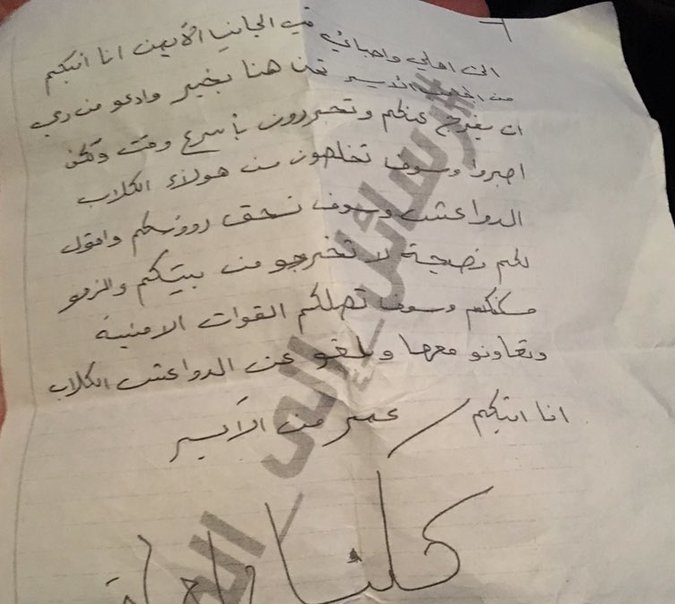 الى اهلي واحبائي في الجانب الأيمن انا ابنكم
من الجانب الايسر نحن هنا بخير وادعو من ربي
ان يفرج عنكم وتحررون بأسرع وقت ولكن
اصبروا وسوف تخلصون من هولاء الكلاب
الدواعش وسوف نسحق رووسهم واقول
لكم نصيحة لا تخرجو من بيتكم والزمو
مسكنكم وسوف تصلكم القوات الامنية
وتعاونو معها وبلغو عن الدواعش الكلاب
انا ابنكم / عمر من الأيسر
كلنا واحد
#رسائل_إلى_